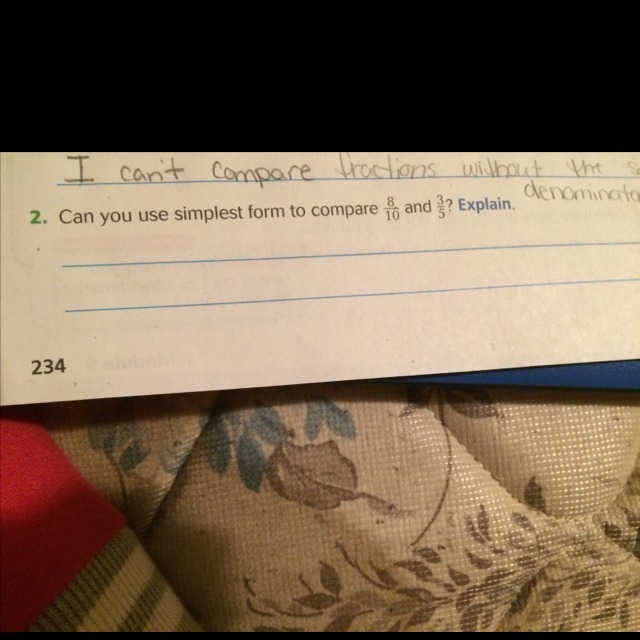 I can't compare fractions without the
denominator
2. Can you use simplest form to compare 8/10 and 3/5? Explain.
234